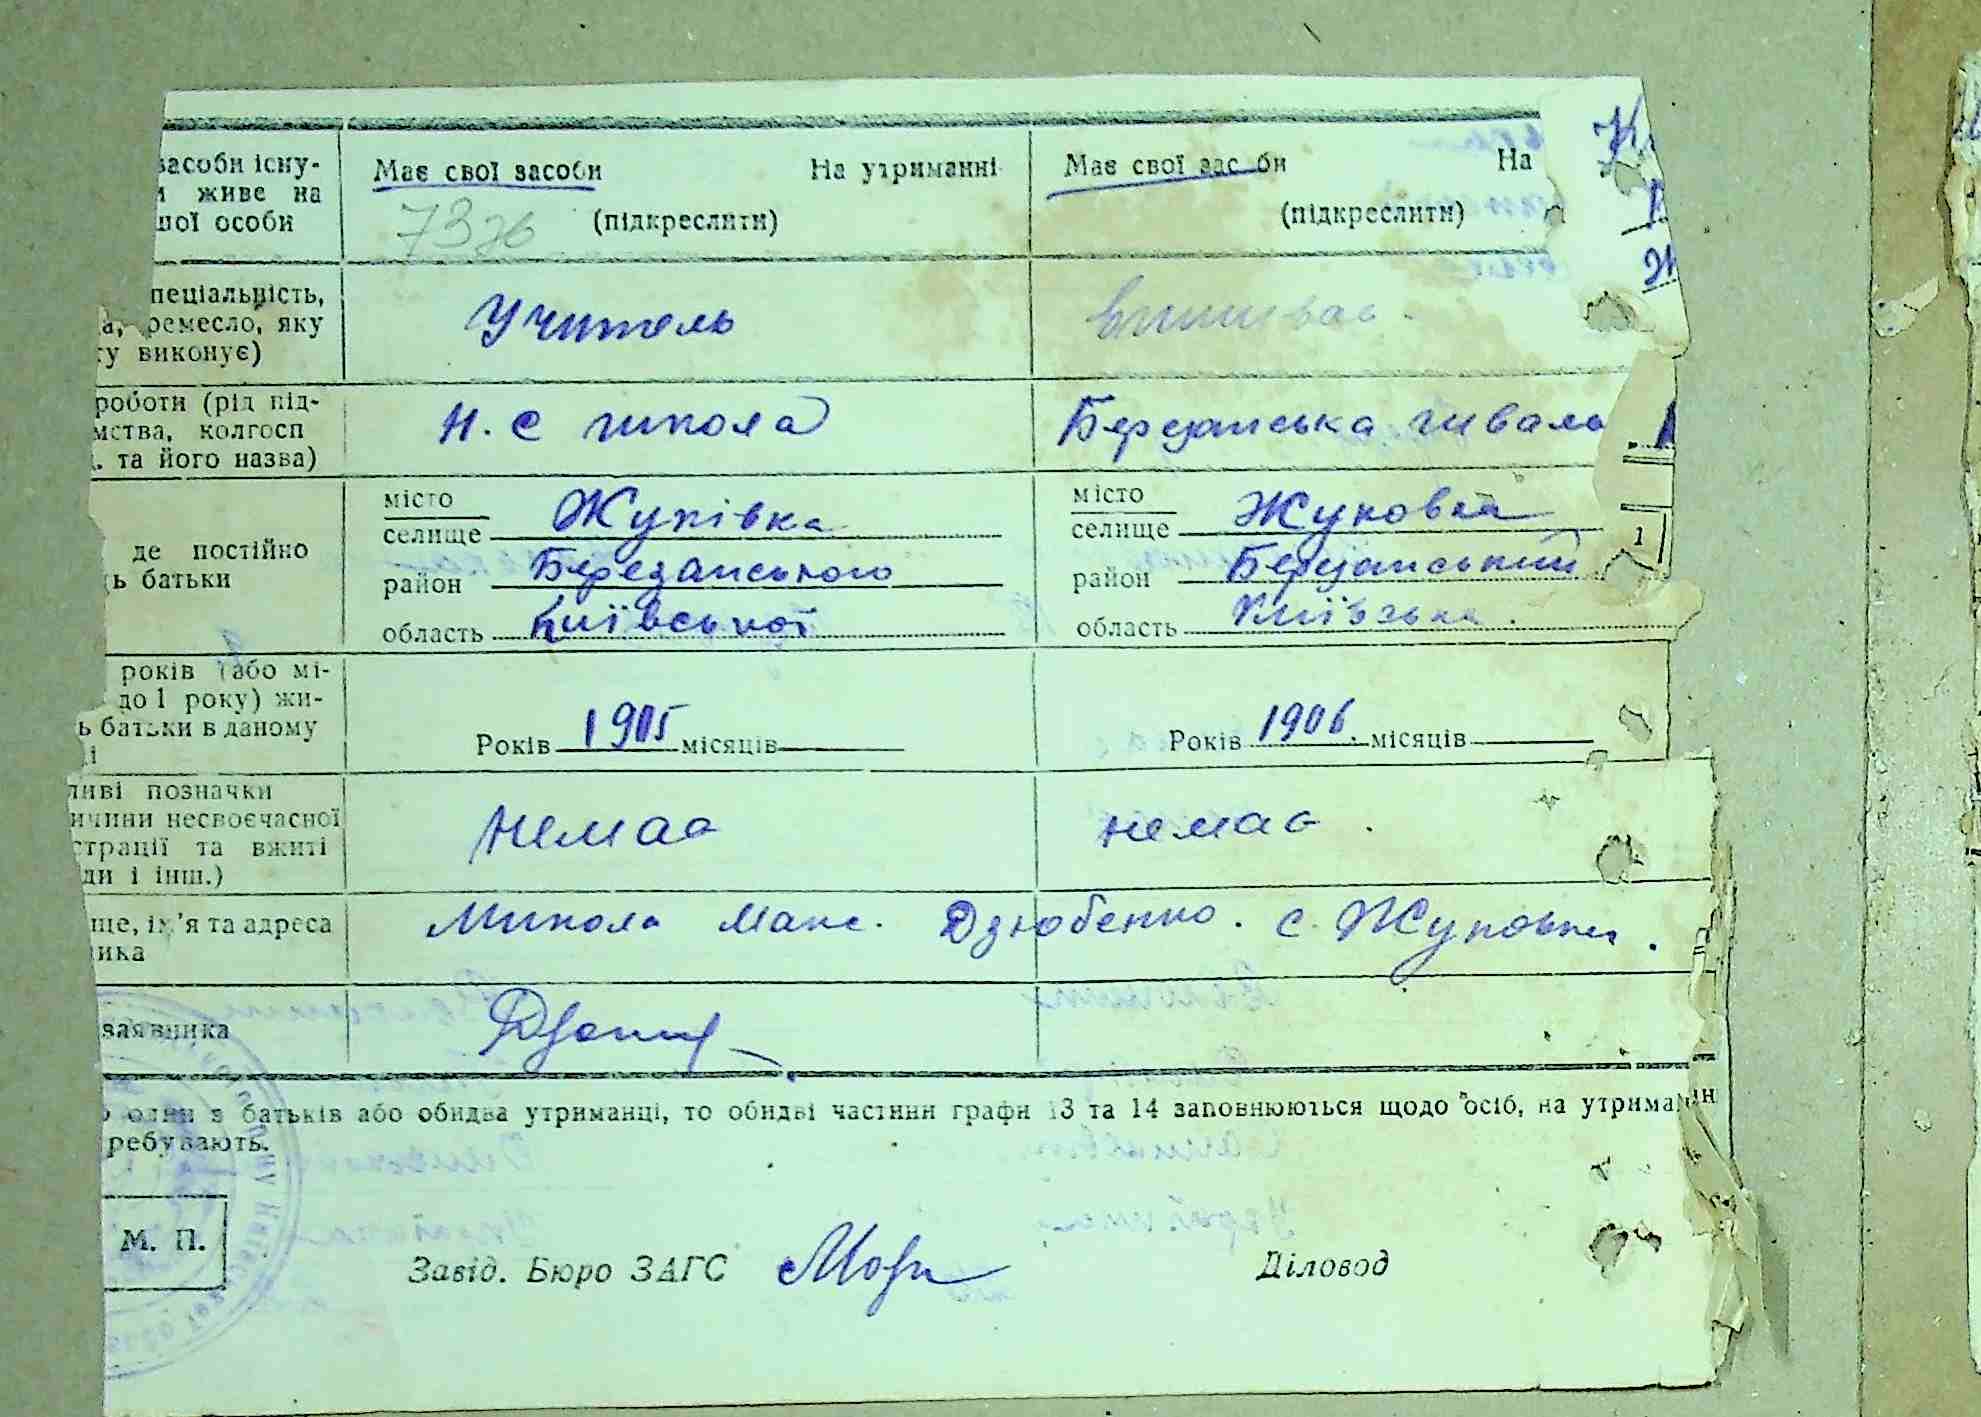 засоби існу- Має свої засоби На утриманні Має свої зас би На
живе на
шої особи 73 (підкреслити) (підкреслити)
пеціальність,
ремесло, яку Учитель вишиває.
ту виконує)
роботи (рід під-
мства, колгосп Н. С школа Березанська
. та його назва)
місто Жуківка місто Жуковка
селище селище
де постійно район Березанського район Березанський
ь батьки
область Київської область Київська.
років (або мі-
до 1 року) жи-
ь батьки в даному Років 1905 місяців Років 1906. місяців
і
ливі позначки
ичини несвоєчасної немає немає.
страції та вжиті
ди і інш.)
ще, ім'я та адреса Микола Макс. Дзюбенко. с. Жуковки.
ика
заявника
один з батьків або обидва утриманці, то обидві частини графи 13 та 14 заповнюються щодо осіб, на утриман
ребувають.
М. П.
Завід. Бюро ЗАГС Діловод